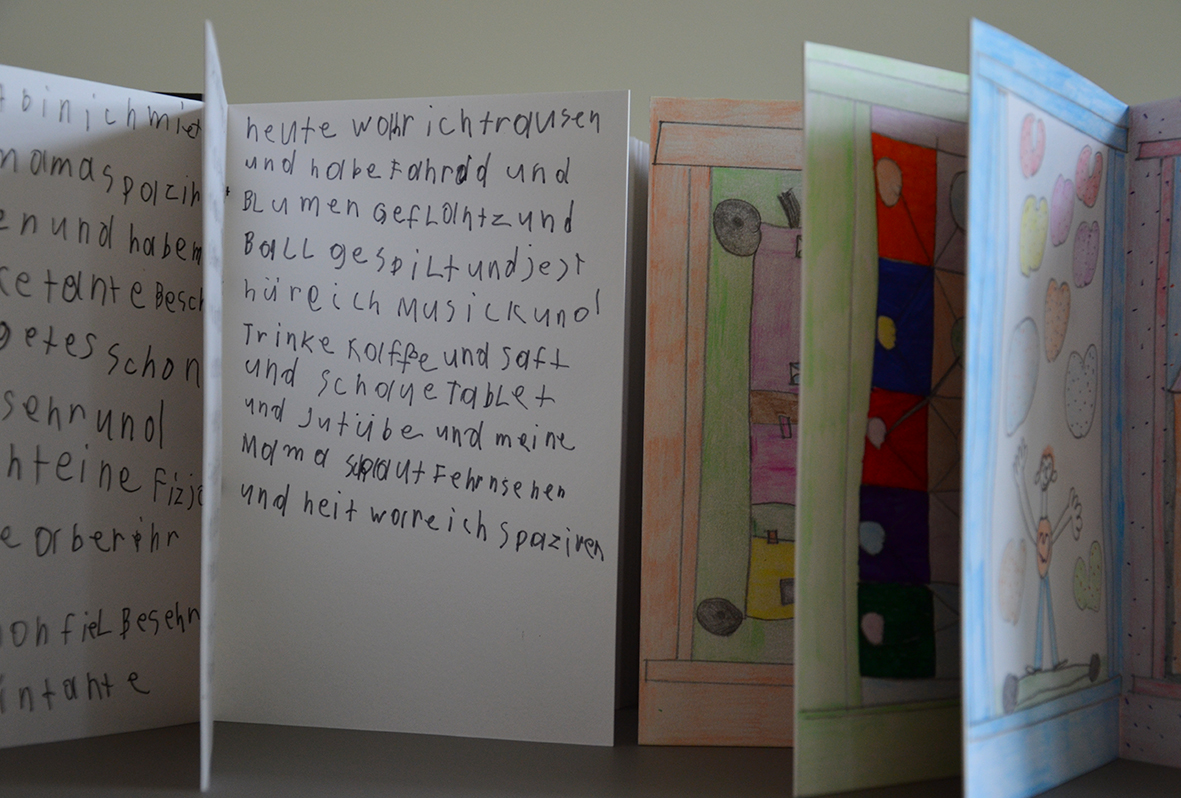 bin ich miet
mama spazin
en und habem
ke tante Besch
getes schon
sehr und
hteine Fizje
e orber ihr
on fiel Besehn
in tante
heute wohr ich trausen
und habe Fahrad und
BLumen GeflaNtz und
BaLL gespiLt und jest
hüreich Musick und
Trinke Kaffee und saft
und schaue TabLet
und Jutübe und meine
Mama schaut Fehrnsehen
und heit warreich spaziren